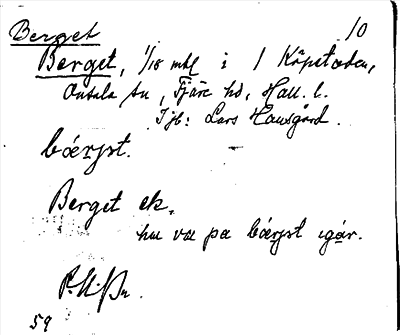 10
Berget
Berget, 1/18 mtl i 1 Kåpstaden,
Onsala sn, Fjäre hd, Hall. l.
Ijb: Lars Hansgård.
bǽrjst.
Berget ek.
hu va pa bǽrjst igår.
59